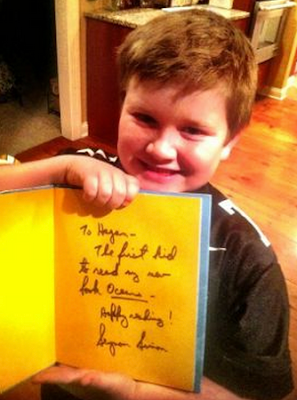 To Hagen -
The first kid
to read my new
book Oceans -
Happy reading!
Seymour Simon